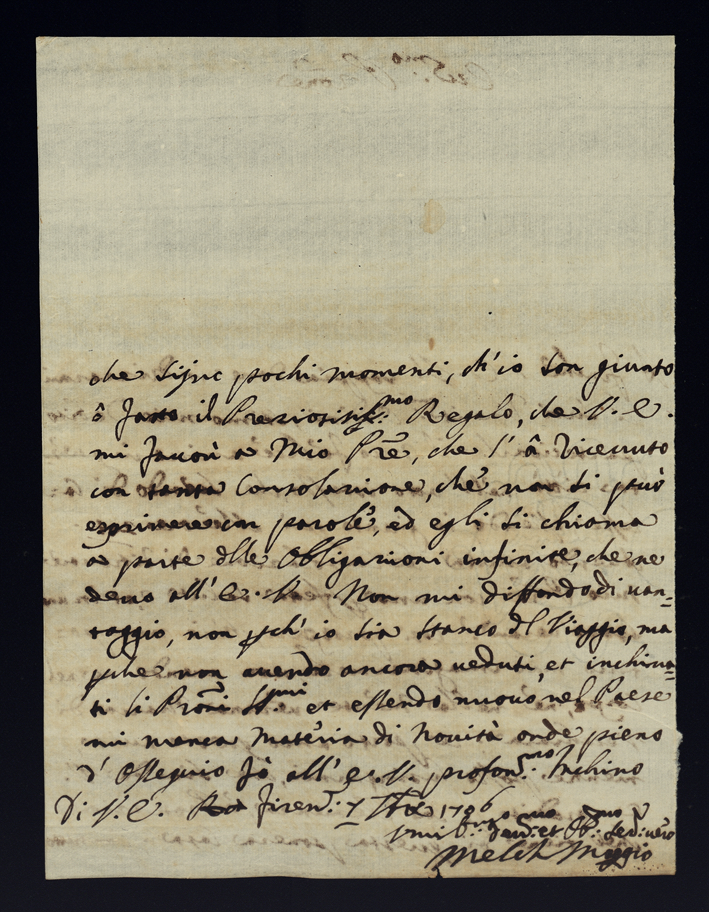 che sijnc pochi momenti, ch'io son giunto
ô fatto il Preziosissi:mo Regalo, che V. E.
mi favorì a Mio Pre, che l' â ricevuto
con tanta Consolazione, che non si può
esprimere con parole, ed egli si chiama
a parte dlle Obbligazioni infinite, che ne
devo all' E. V. Non mi diffondo di van=
taggio, non pch' io sia stanco dl Viaggio, ma
pche non avendo ancora veduti, et inchina=
ti li Proni SSmi et essendo nuovo nel Paese
mi manca Materia di Novità onde pieno
d' Ossequio fò all' E. V. profon:mo Inchino
Di V. E. Firen: 7 1706
Devmo: et Obmo: Se: vero
Melch Maggio